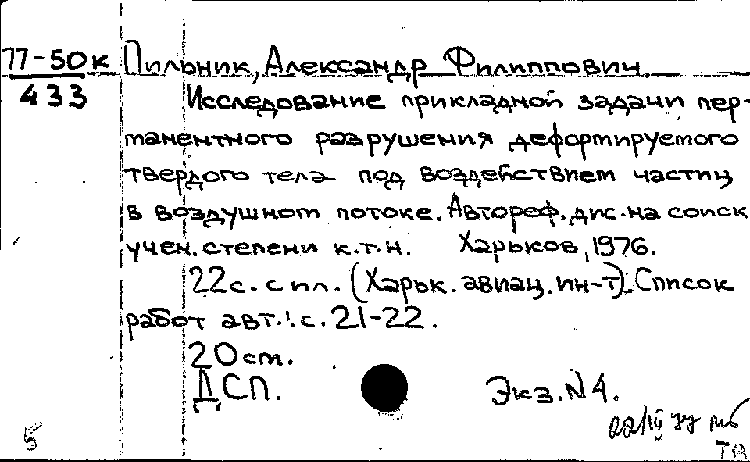 77-50к Пильник, Александр Филиппович
433 Исследование прикладной задачи пер-
манентного разрушения деформируемого
твердого тела под воздействием частиц
в воздушном потоке. Автореф. дис. на соиск
учен. степени к.т.н. Харьков, 1976.
22с. с ил. (Харьк. авиац. ин-т). Список
работ авт.: с. 21-22.
20 см.
ДСП. Экз. №4.
5